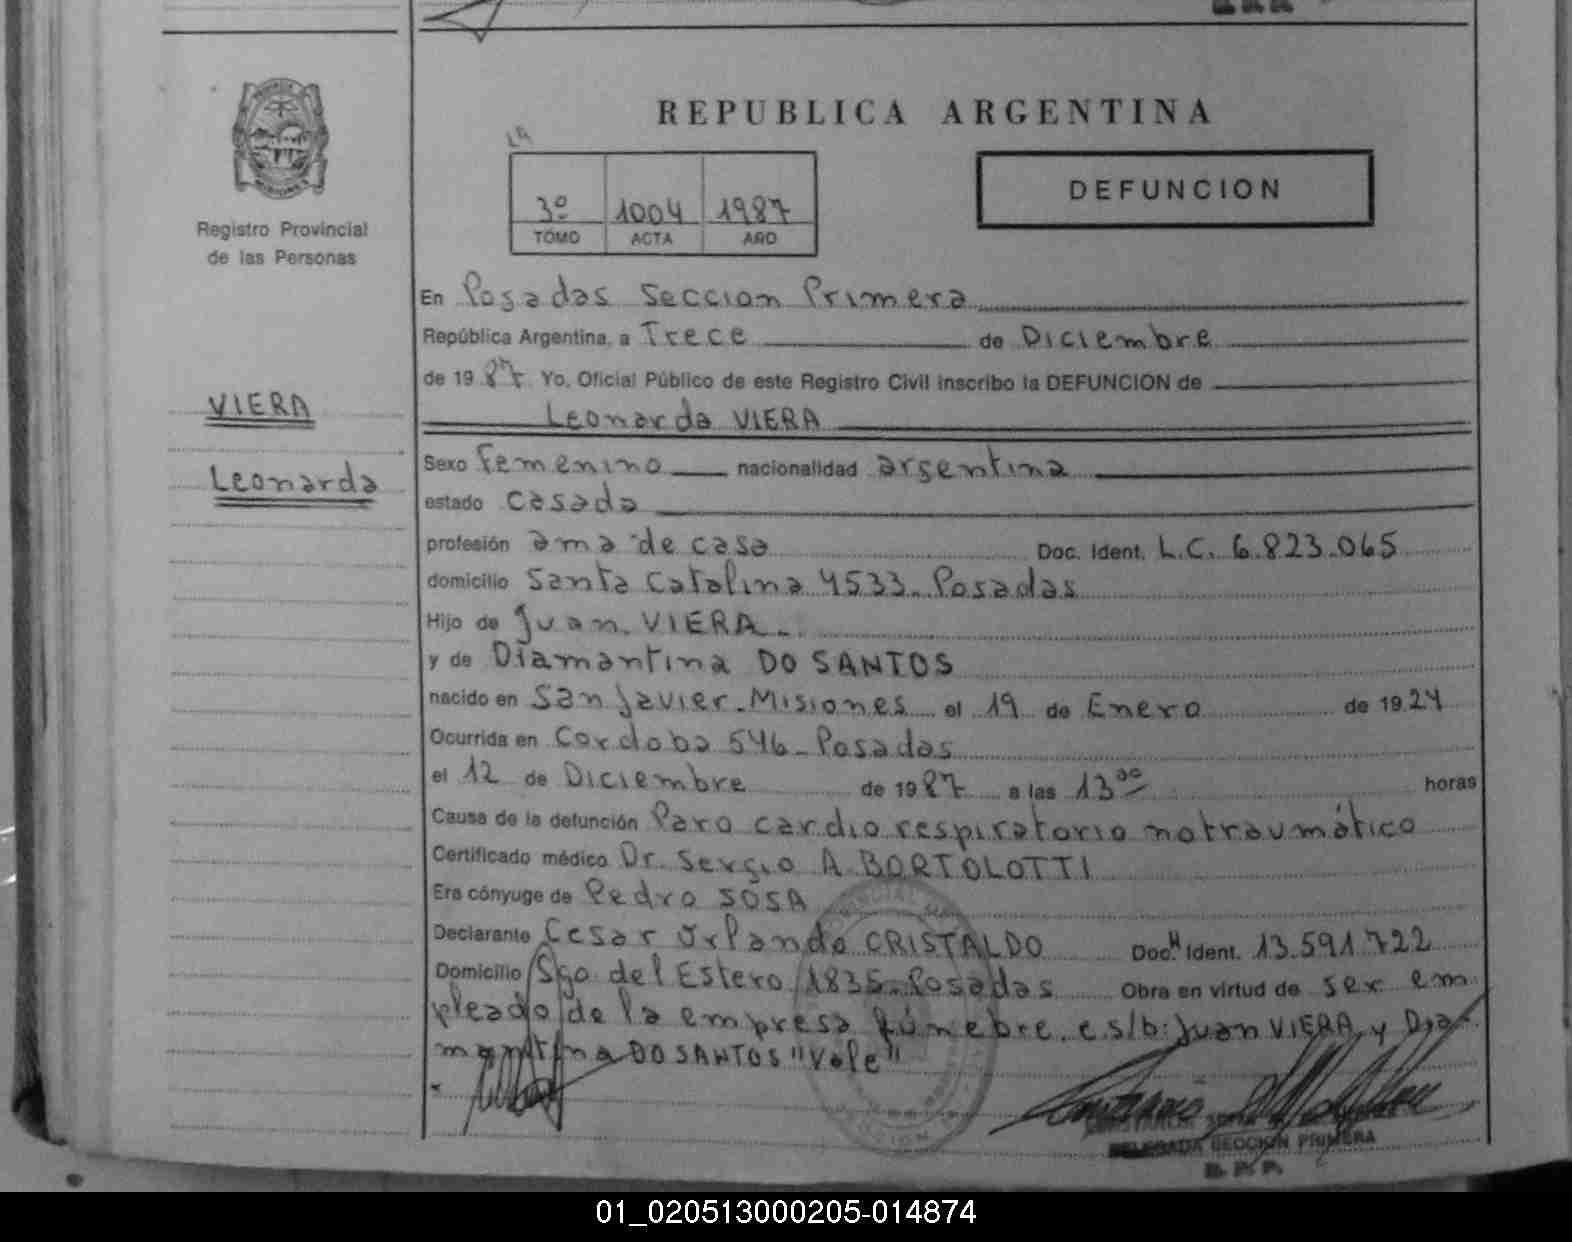 REPUBLICA ARGENTINA
3º 1004 1987
TOMO ACTA AÑO
DEFUNCION
Registro Provincial
de las Personas
VIERA
Leonarda
En Posadas Seccion Primera
República Argentina, a Trece de Diciembre
de 19 87 Yo, Oficial Público de este Registro Civil inscribo la DEFUNCION de
Leonarda VIERA
Sexo femenino nacionalidad argentina
estado casada
profesión ama de casa Doc. Ident. L.C. 6.823.065
domicilio Santa Catalina 4533_Posadas
Hijo de Juan VIERA_
y de Diamantina DO SANTOS
nacido en San Javier_Misiones el 19 de Enero de 19 24
Ocurrida en Cordoba 546_Posadas
el 12 de Diciembre de 19 87 a las 13 00 horas
Causa de la defunción Paro cardio respiratorio no traumático
Certificado médico Dr. Sergio A. BORTOLOTTI
Era cónyuge de Pedro SOSA
Declarante Cesar Orlando CRISTALDO Doc. Ident. 13.591.722
Domicilio Sgo. del Estero 1835_Posadas Obra en virtud de ser em
pleado de la empresa fúnebre. e.s/b: Juan VIERA y Dia-
mantina DO SANTOS "Vale"
DELEGADA SECCION PRIMERA
R. P. P.
01_020513000205-014874